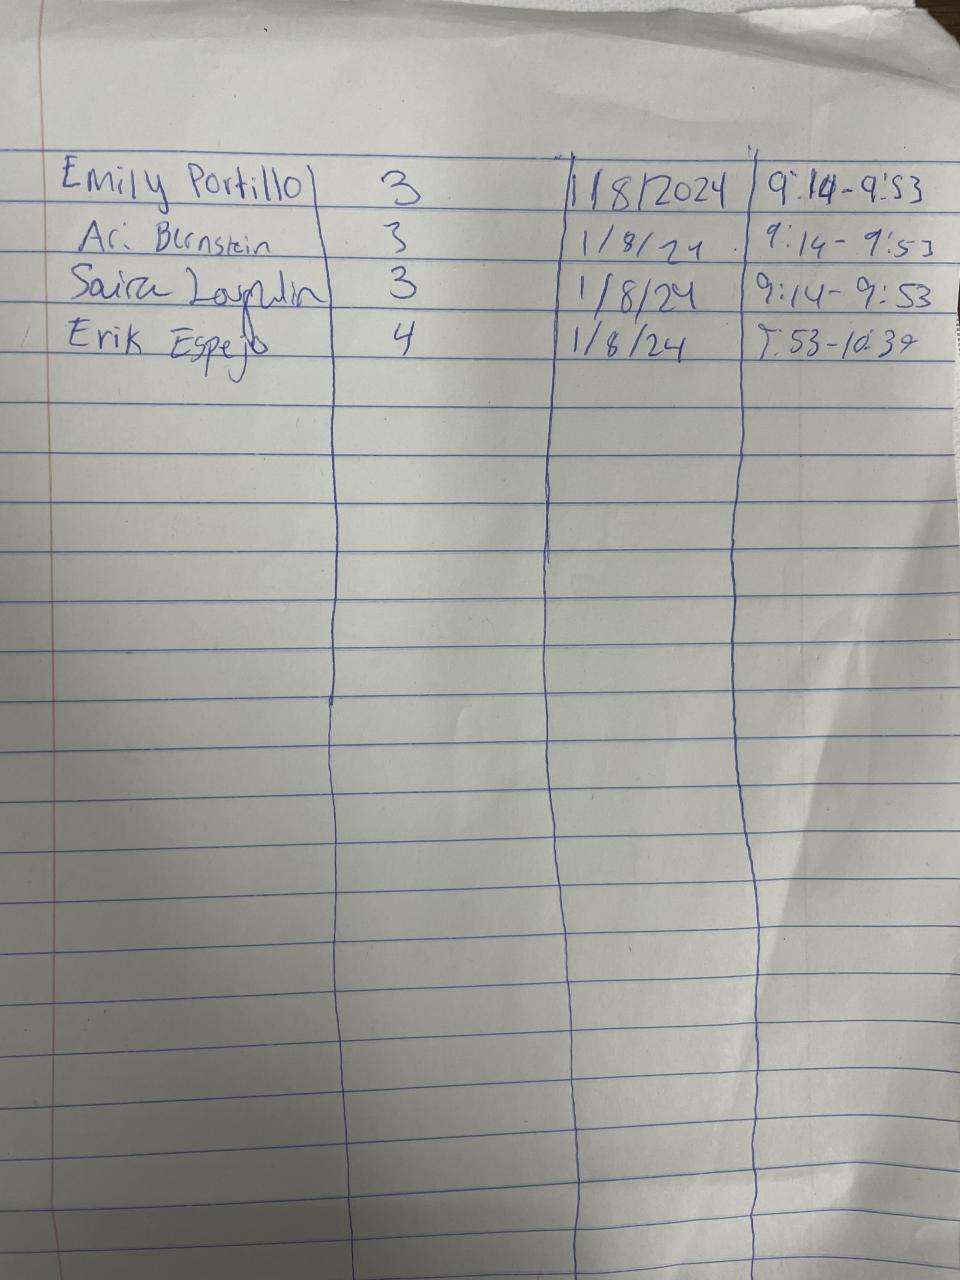 Emily Portillo 3 1/8/2024 9:14-9:53
Ari Bernstein 3 1/8/24 9:14-9:53
Saira 3 1/8/24 9:14-9:53
Erik Espejo 4 1/8/24 :53-10:39